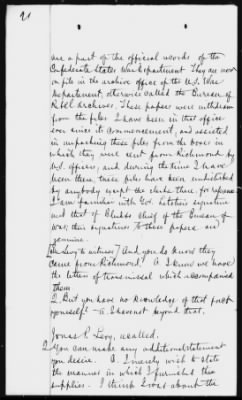 91
are a part of the official records of the
Confederate States War Department. They are now
on file in the archive office of the U.S. War
Department, otherwise called the Bureau of
Rebel Archives. These papers were withdrawn
from the files. I have been in that office
ever since its commencement, and assisted
in unpacking these files from the boxes in
which they were sent from Richmond by
U.S. officers, and during the time I have
been there, these files have been undisturbed
by anybody except the clerks there, for reference
I am familiar with Gov. signature
and that of Chief of the Bureau of
War, their signatures to these papers are
genuine.
witness? And you do know they
came from Richmond? A. I know we have
the letters of transmissal which accompanied
them
Q. But you have no knowledge of that fact
yourself? A. I have not beyond that.
Jonas P. Levy, recalled.
Q. You can make any additional statement
you desire. A. I merely wish to state
the manner in which I furnished these
supplies. I think I was about the